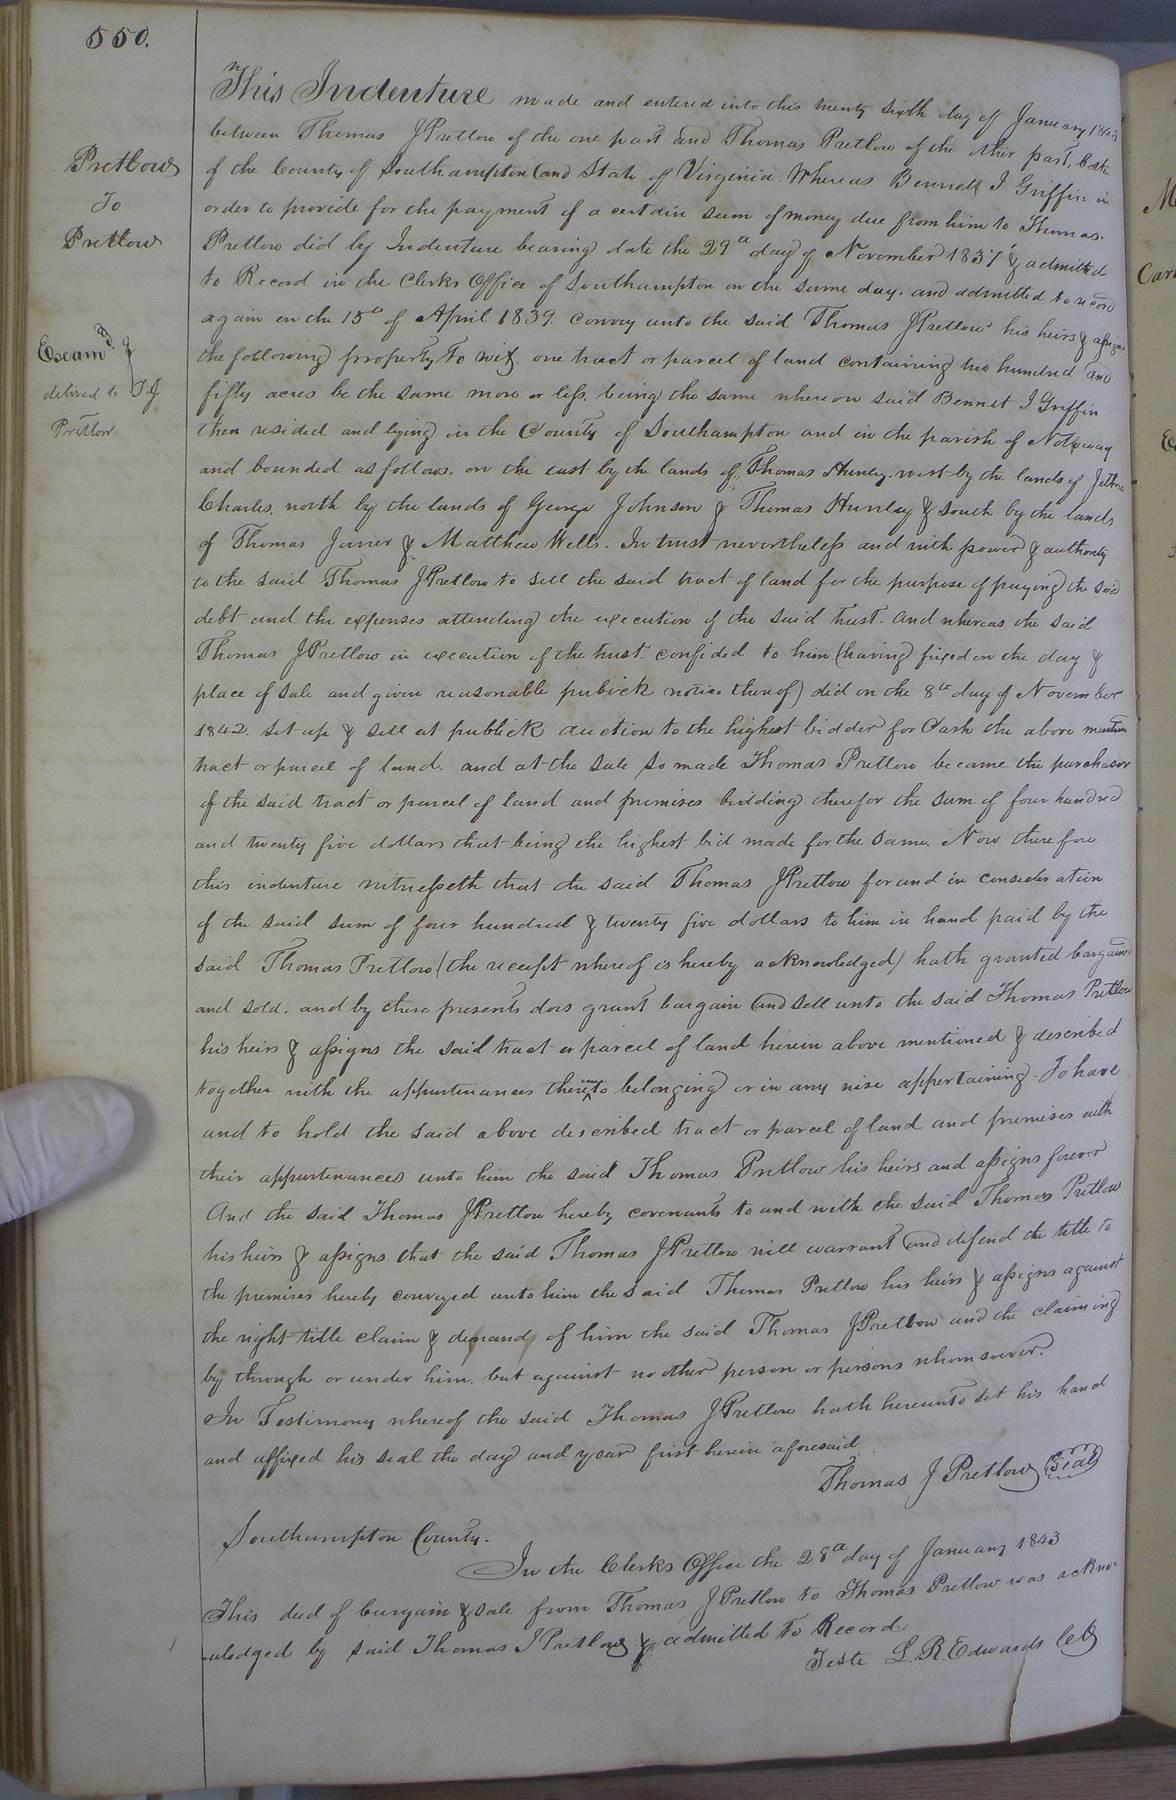 550.
This Indenture made and entered into this twenty sixth day of January 1843
between Thomas J Pretlow of the one part and Thomas Pretlow of the other part, both
of the County of Southampton and State of Virginia. Whereas Bennett J Griffin in
order to provide for the payment of a certain sum of money due from him to Thomas
Pretlow did by Indenture bearing date the 29th day of November 1837 & admitted
to Record in the Clerks Office of Southampton on the same day. and admitted to record
again on the 15th of April 1839. convey unto the said Thomas J Pretlow his heirs & assigns
the following property to wit, one tract or parcel of land containing two hundred and
fifty acres be the same more or less, being the same whereon said Bennet J Griffin
then resided and lying in the County of Southampton and in the parish of Nottoway
and bounded as follows. on the east by the lands of Thomas Hunley. west by the lands of Jethro
Charles, north by the lands of George Johnson & Thomas Hunley & south by the lands
of Thomas Joiner & Matthew Wells. In trust nevertheless and with power & authority
to the said Thomas J Pretlow to sell the said tract of land for the purpose of paying the said
debt and the expenses attending the execution of the said trust. and whereas the said
Thomas J Pretlow in execution of the trust confided to him (having fixed on the day &
place of sale and given reasonable publick notice thereof) did on the 8th day of November
1842. set up & sell at publick auction to the highest bidder for Cash the above mention
tract or parcel of land. and at the sale so made Thomas Pretlow became the purchaser
of the said tract or parcel of land and premises bidding therefor the sum of four hundred
and twenty five dollars that being the highest bid made for the same. Now therefore
this indenture witnesseth that the said Thomas J Pretlow for and in consideration
of the said sum of four hundred & twenty five dollars to him in hand paid by the
said Thomas Pretlow (the receipt whereof is hereby acknowledged) hath granted bargained
and sold. and by these presents does grant bargain and sell unto the said Thomas Pretlow
his heirs & assigns the said tract or parcel of land herein above mentioned & described
together with the appurtenances thereunto belonging or in any wise appertaining. To have
and to hold the said above described tract or parcel of land and premises with
their appurtenances unto him the said Thomas Pretlow his heirs and assigns forever
And the said Thomas J Pretlow hereby covenants to and with the said Thomas Pretlow
his heirs & assigns that the said Thomas J Pretlow will warrant and defend the title to
the premises hereby conveyed unto him the said Thomas Pretlow his heirs & assigns against
the right title claim & demand of him the said Thomas J Pretlow and the claiming
by through or under him. but against no other person or persons whomsoever.
In Testimony whereof the said Thomas J Pretlow hath hereunto set his hand
and affixed his seal the day and year first herein aforesaid
Thomas J Pretlow Seal
Southampton County.
In the Clerks Office the 28th day of January 1843
This deed of bargain & sale from Thomas J Pretlow to Thomas Pretlow was ackno-
wledged by said Thomas J Pretlow & admitted to Record
Teste L. R. Edwards
Pretlow
To
Pretlow
Examd. &
delived to T J
Pretlow.